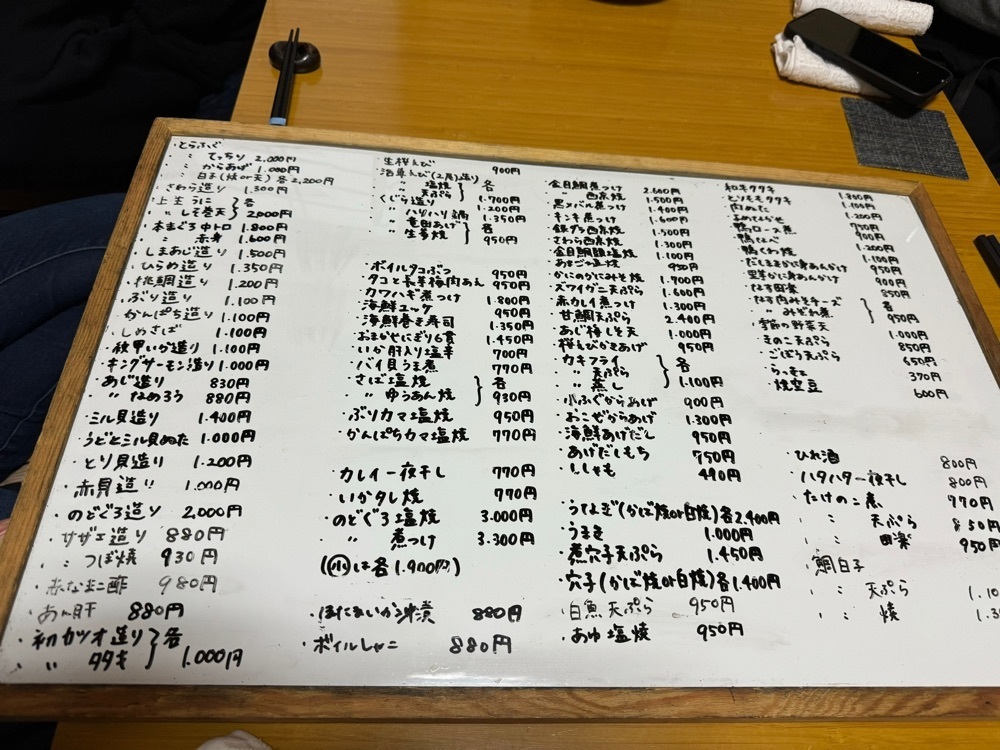 ・とらふぐ
〃 てっちり 2,000円
〃 からあげ 1.000円
〃 白子(焼or天)各2,200円
・さわら造り 1.300円
・上生うに
〃 しそ巻天 } 各 2,000円
・本まぐろ中トロ 1.800円
〃 赤身 1.600円
・しまあじ造り 1.500円
・ひらめ造り 1.350円
・桃鯛造り 1.200円
・ぶり造り 1.100円
・かんぱち造り 1.100円
・しめさば 1.100円
・紋甲いか造り 1.100円
・キングサーモン造り 1.000円
・あじ造り 830円
〃 なめろう 880円
・ミル貝造り 1.400円
・うどとミル貝ぬた 1.000円
・とり貝造り 1.200円
・赤貝造り 1.000円
・のどぐろ造り 2.000円
・サザエ造り 880円
〃 つぼ焼 930円
・赤なまこ酢 980円
・あん肝 880円
・初カツオ造り
〃 タタキ } 各 1.000円
・生桜えび 900円
・活車えび(2尾)造り
〃 塩焼
〃 天ぷら } 各 1.700円
・くじら造り 1.200円
〃 ハリハリ鍋 1.350円
〃 竜田あげ
〃 生姜焼 } 各 950円
・ボイルタコぶつ 950円
・タコと長芋梅肉あえ 950円
・カワハギ煮つけ 1.800円
・海鮮ユッケ 950円
・海鮮巻き寿司 1.350円
・おまかせにぎり6貫 1.450円
・いか肝入り塩辛 700円
・バイ貝うま煮 770円
・さば塩焼
〃 ゆうあん焼 } 各 930円
・ぶりカマ塩焼 950円
・かんぱちカマ塩焼 770円
・カレイ一夜干し 770円
・いかタレ焼 770円
・のどぐろ塩焼 3.000円
〃 煮つけ 3.300円
(小は各1.900円)
・ほたるいか沖漬 880円
・ボイルしゃこ 880円
・金目鯛煮つけ 2.600円
〃 西京焼 1.500円
・黒メバル煮つけ 1.400円
・キンキ煮つけ 1.600円
・銀ダラ西京焼 1.500円
・さわら西京焼 1.300円
・金目鯛頭塩焼 1.100円
・あまご塩焼 950円
・かにのかにみそ焼 1.700円
・ズワイガニ天ぷら 1.600円
・赤カレイ煮つけ 1.300円
・甘鯛天ぷら 2.400円
・あじ梅しそ天 1.000円
・桜えびかきあげ 950円
・カキフライ
〃 天ぷら
〃 蒸し } 各 1.100円
・小ふぐからあげ 900円
・おこぜからあげ 1.300円
・海鮮あげだし 950円
・あげだしもち 750円
・ししゃも 490円
・うなぎ(かば焼or白焼)各2.400円
・うまき 1.000円
・煮穴子天ぷら 1.450円
・穴子(かば焼or白焼)各1.400円
・白魚天ぷら 950円
・あゆ塩焼 950円
・和牛タタキ 1.800円
・とりモモタタキ 1.100円
・肉ぬた 1.200円
750円
・鴨ロース煮 900円
1.200円
・鴨くわ焼 1.100円
・だしまきかに身あんかけ 950円
・里芋かに身あんかけ 900円
・なす田楽 850円
・なす肉みそチーズ
〃 みぞれ煮 } 各 950円
・季節の野菜天 1.000円
・きのこ天ぷら 850円
・ごぼう天ぷら 650円
・らっきょ 370円
・焼空豆 600円
・ひれ酒 800円
・ハタハタ一夜干し 800円
・たけのこ煮 770円
〃 天ぷら 850円
〃 田楽 950円
・鯛白子
〃 天ぷら 1.10
〃 焼 1.3